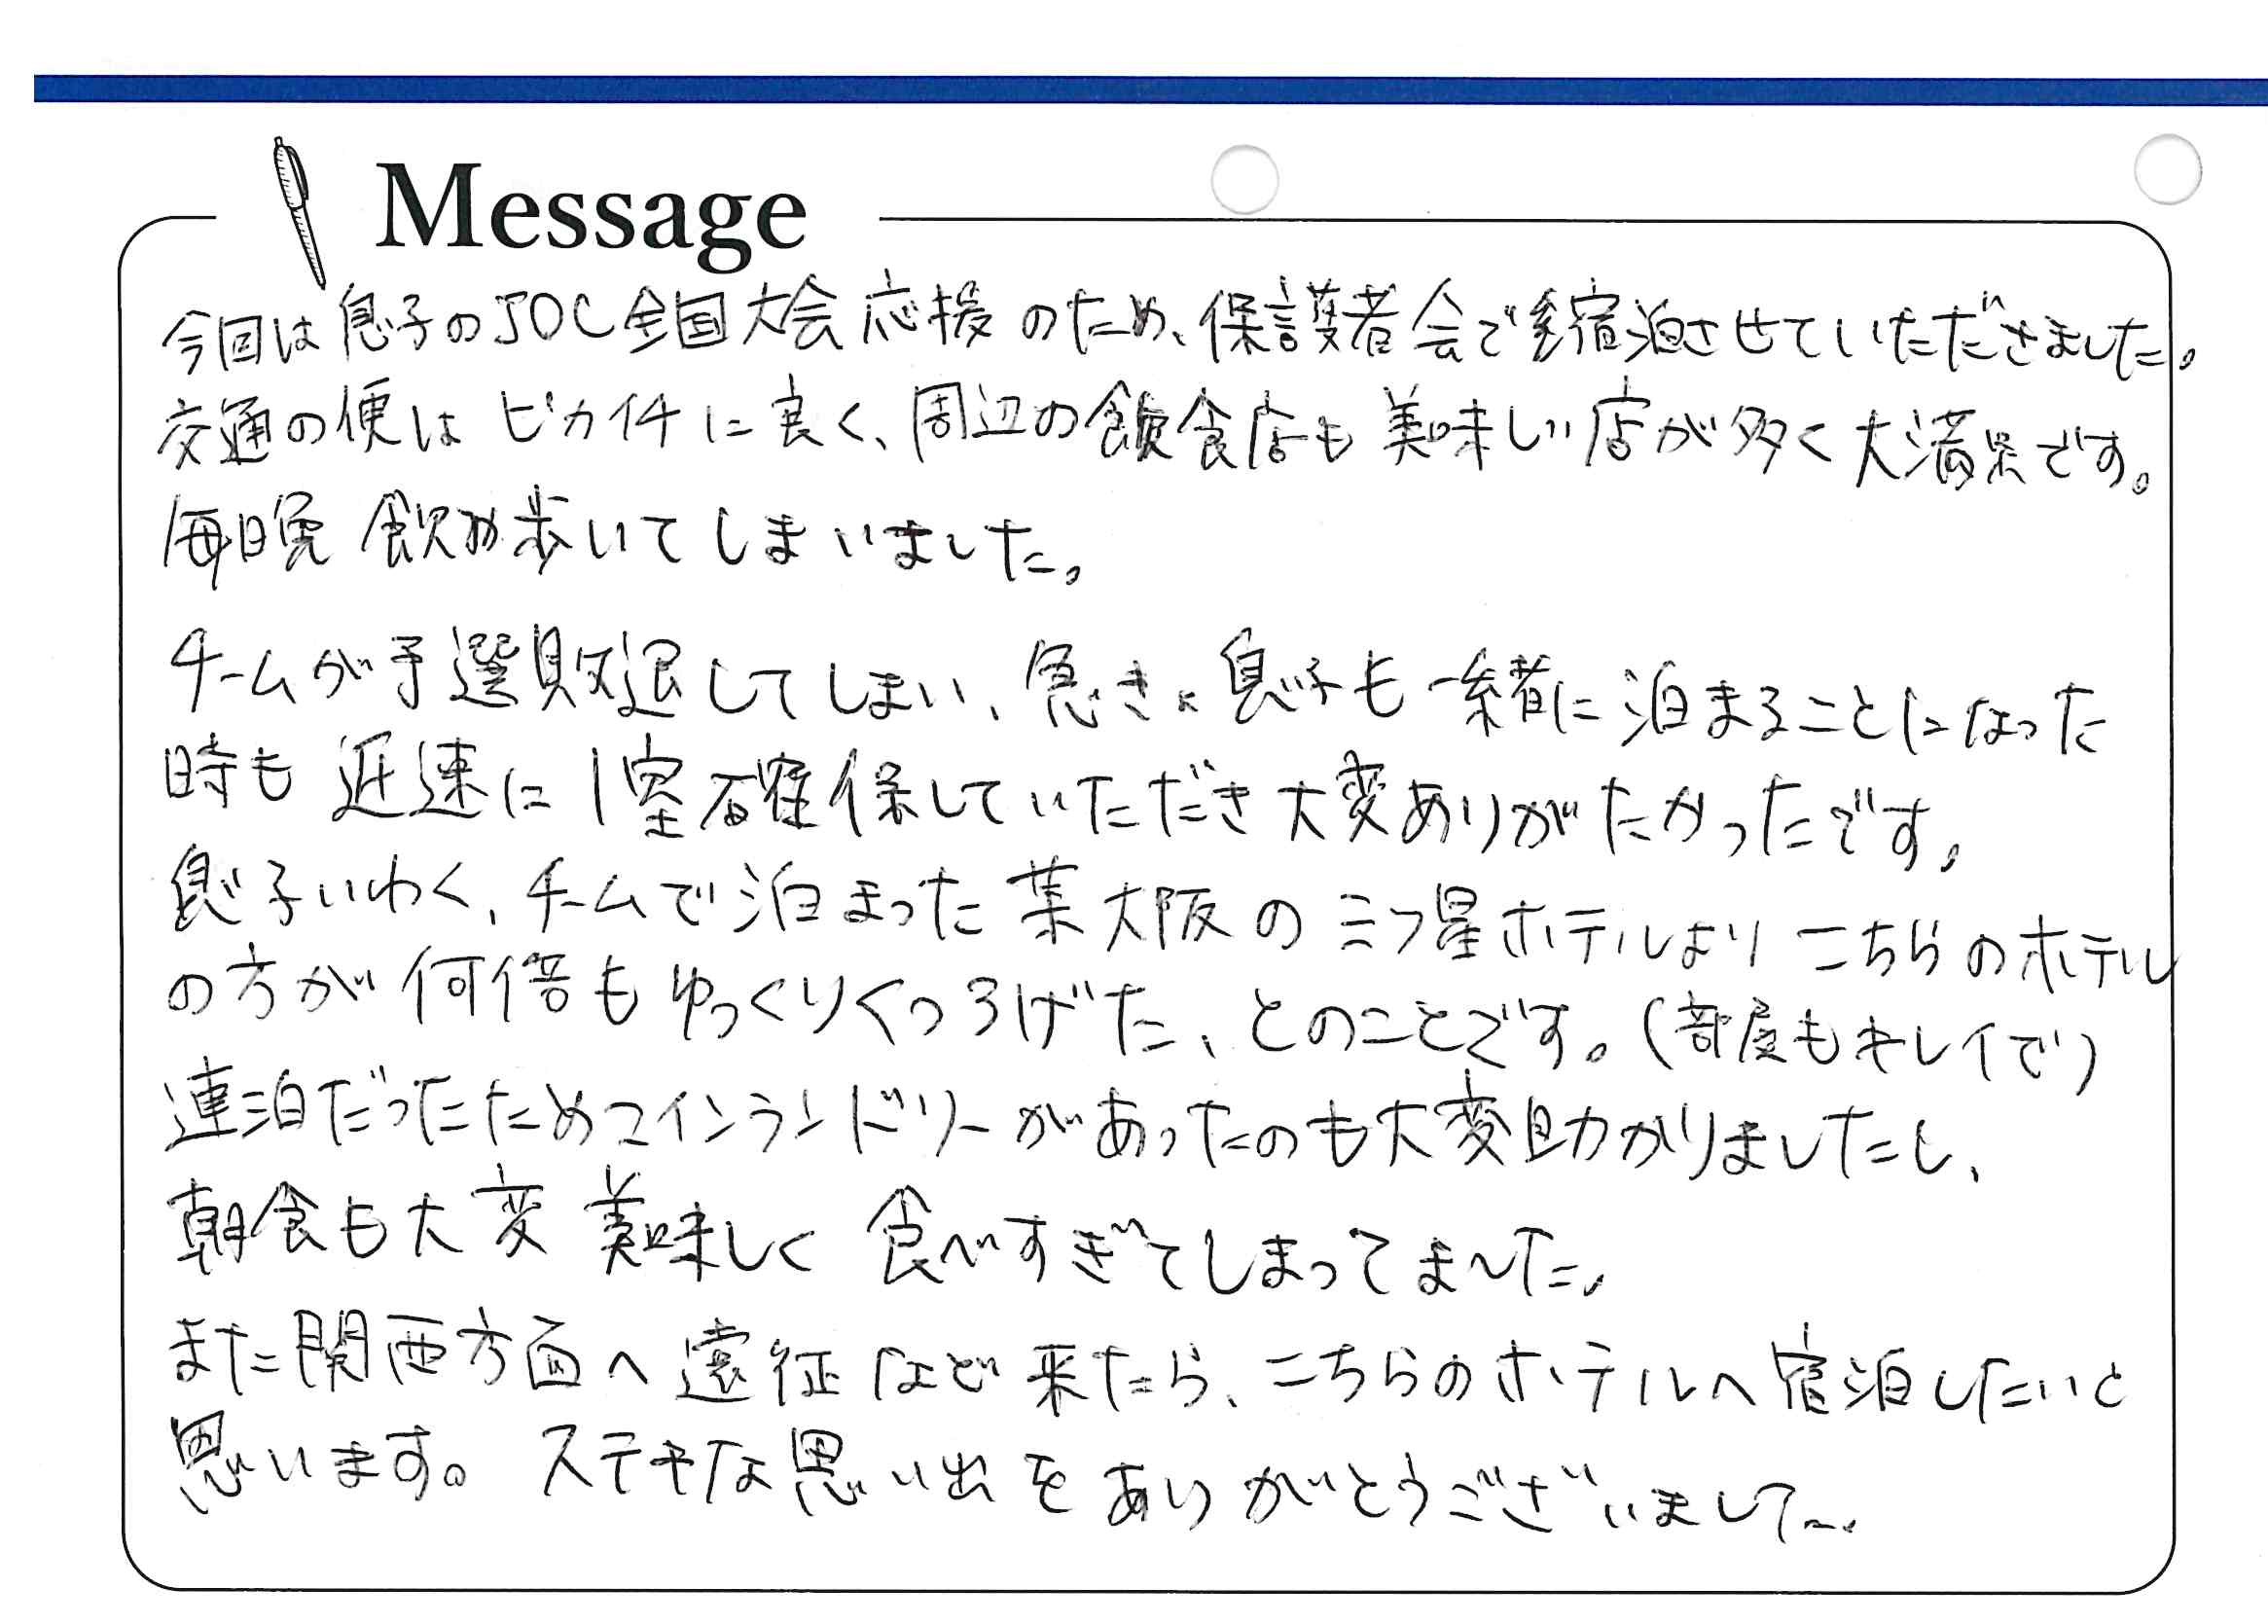 Message
今回は息子のJOC全国大会応援のため、保護者会で宿泊させていただきました。
交通の便はピカイチに良く、周辺の飲食店も美味しい店が多く大満足です。
毎日晩飲み歩いてしまいました。
チームが予選敗退してしまい、急きょ息子も一緒に泊まることになった
時も迅速に1室確保していただき大変ありがたかったです。
息子いわく、チームで泊まった某大阪の三つ星ホテルよりこちらのホテル
の方が何倍もゆっくりくつろげた、とのことです。(部屋もキレイで)
連泊だったためコインランドリーがあったのも大変助かりましたし、
朝食も大変美味しく食べすぎてしまってました。
また関西方面へ遠征など来たら、こちらのホテルへ宿泊したいと
思います。ステキな思い出をありがとうございました。